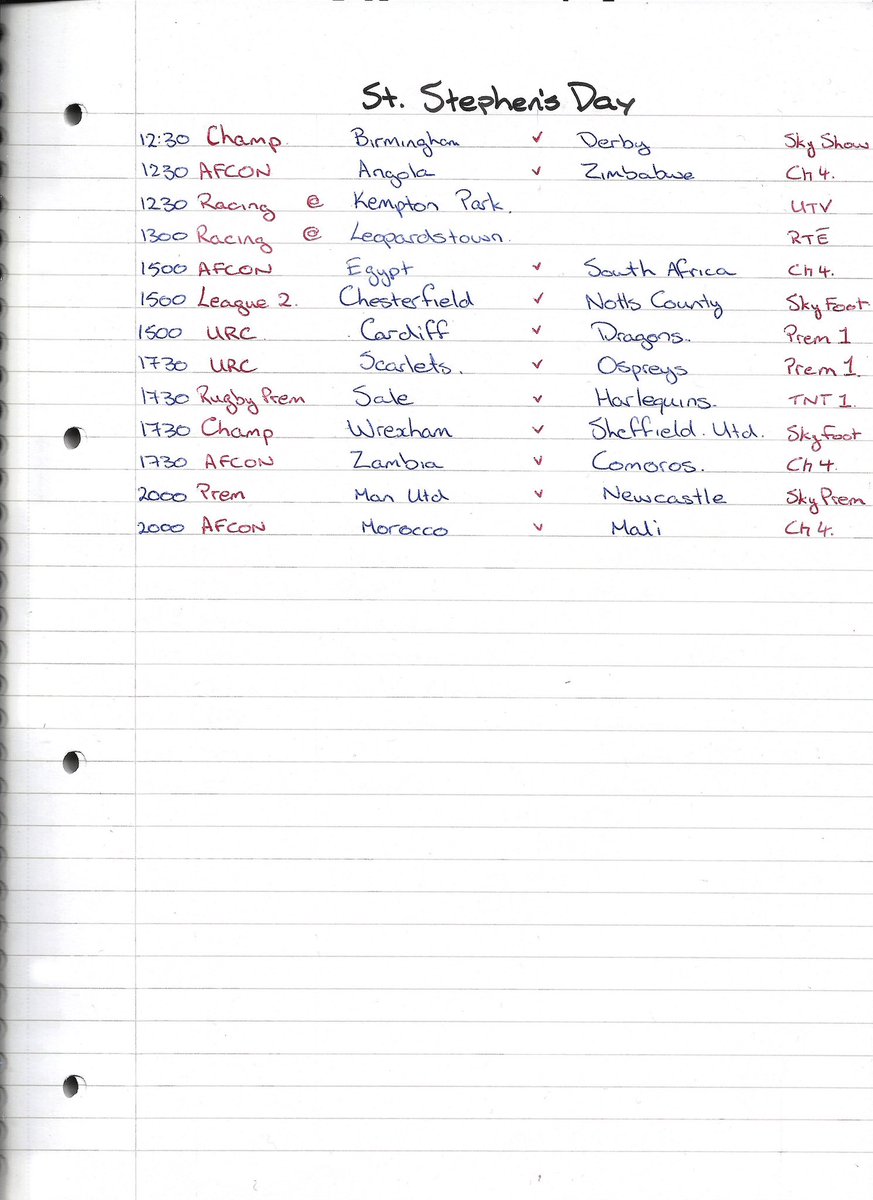 St. Stephen's Day
12:30 Champ. Birmingham v Derby Sky Show
1230 AFCON Angola v Zimbabwe Ch 4.
1230 Racing @ Kempton Park. UTV
1300 Racing @ Leopardstown. RTÉ
1500 AFCON Egypt v South Africa Ch 4.
1500 League 2. Chesterfield v Notts County Sky Foot
1500 URC Cardiff v Dragons. Prem 1
1730 URC Scarlets. v Ospreys Prem 1.
1730 Rugby Prem Sale v Harlequins. TNT 1.
1730 Champ Wrexham v Sheffield. Utd. Sky Foot
1730 AFCON Zambia v Comoros. Ch 4.
2000 Prem Man Utd v Newcastle Sky Prem
2000 AFCON Morocco v Mali Ch 4.